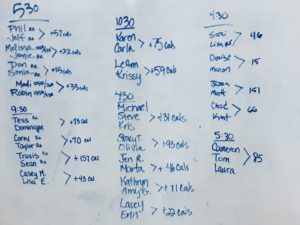 5:30
Phil Rx
Jeff Rx
> +57 cals
Melissa
Jamie
> +22 cals
Dan Rx
Sonia
> +15 cals
Madi
Robin
> +33 cals
9:30
Tess Rx
Dominique
> +93 cal
Corey Rx
Taylor Rx
> +70 cal
Travis Rx
Sean Rx
> +157 cal
Casey M.
Lisa E.
> +43 cal
10:30
Karen
Carla
> +75 cals
LeAnn
Krissy
> +59 cals
4:30
Michael
Steve
Kris
> +131 cals
Stacy T.
Olivia
> +93 cals
Jen R.
Marta
> +46 cals
Kathryn
Amy G.
> +11 cals
Lacey
Erin
> +22 cals
4:30
> 46
Denise
> 15
Matt
> 151
Chad
Kent
> 66
5:30
Cameron
Tom
Laura
> 85